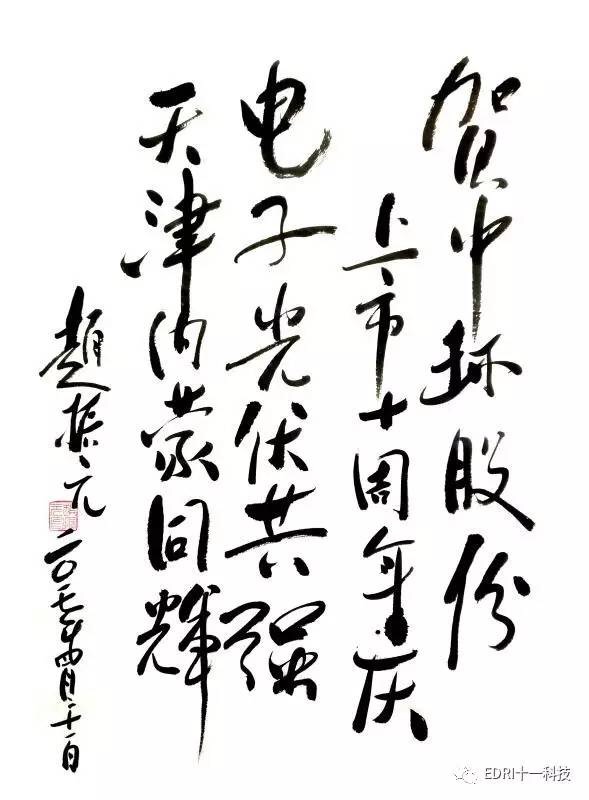 贺中环股份
上市十周年庆
电子光伏共强
天津内蒙同辉
趙振元
二〇一七年四月二十一日
EDRI十一科技